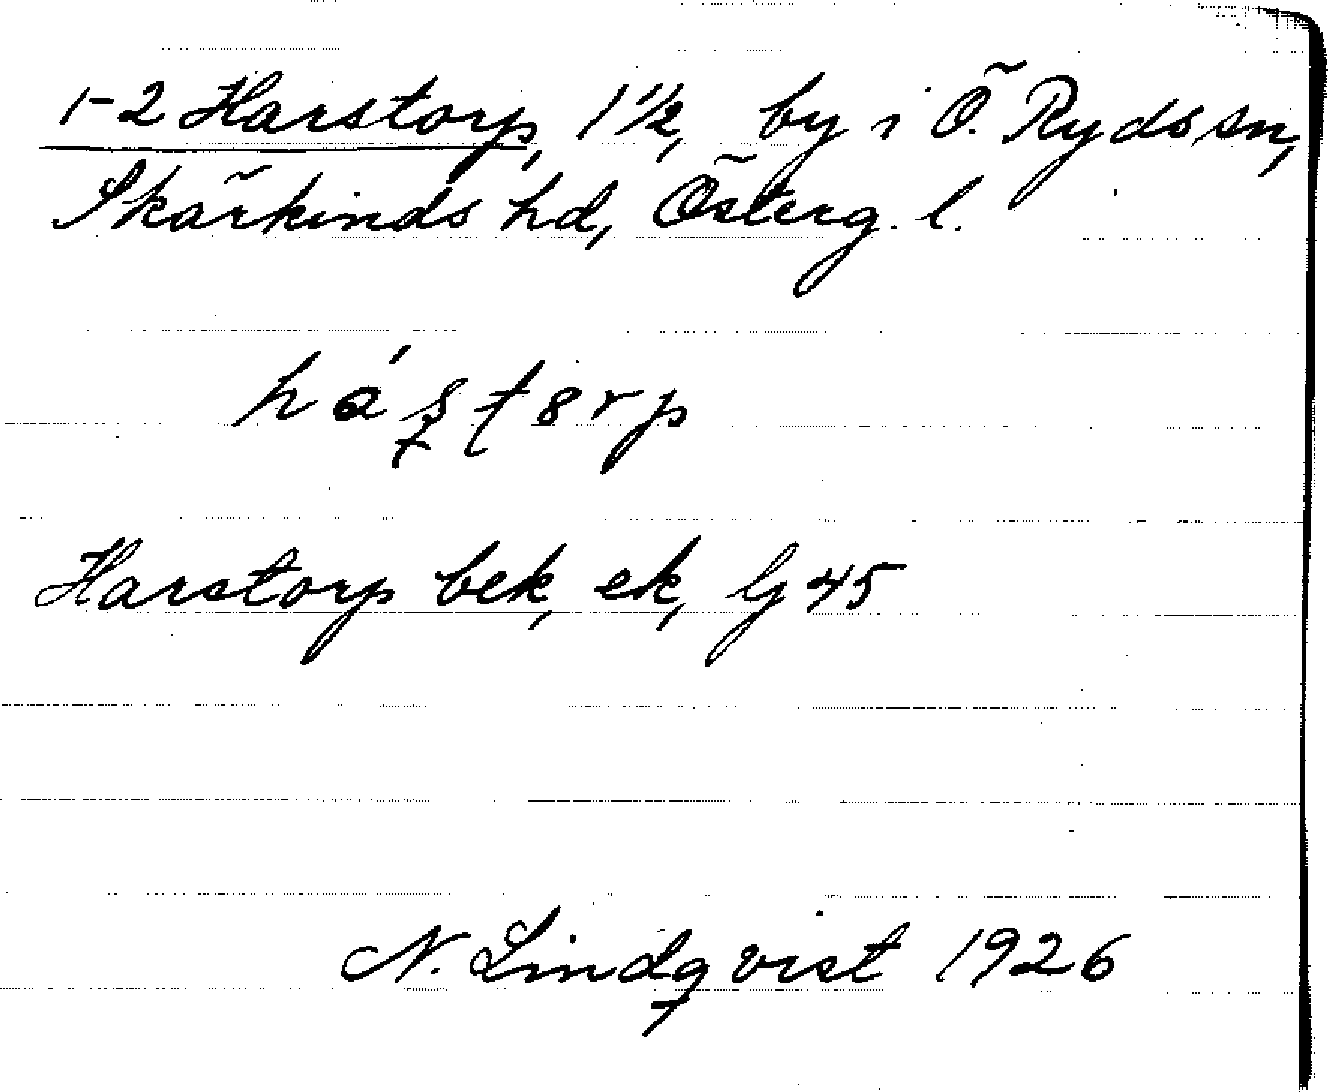 1-2 Harstorp, 1 1/2, by i Ö. Ryds sn,
Skärkinds hd, Österg. l.
Harstorp bek, ek, lj 45
N. Lindqvist 1926